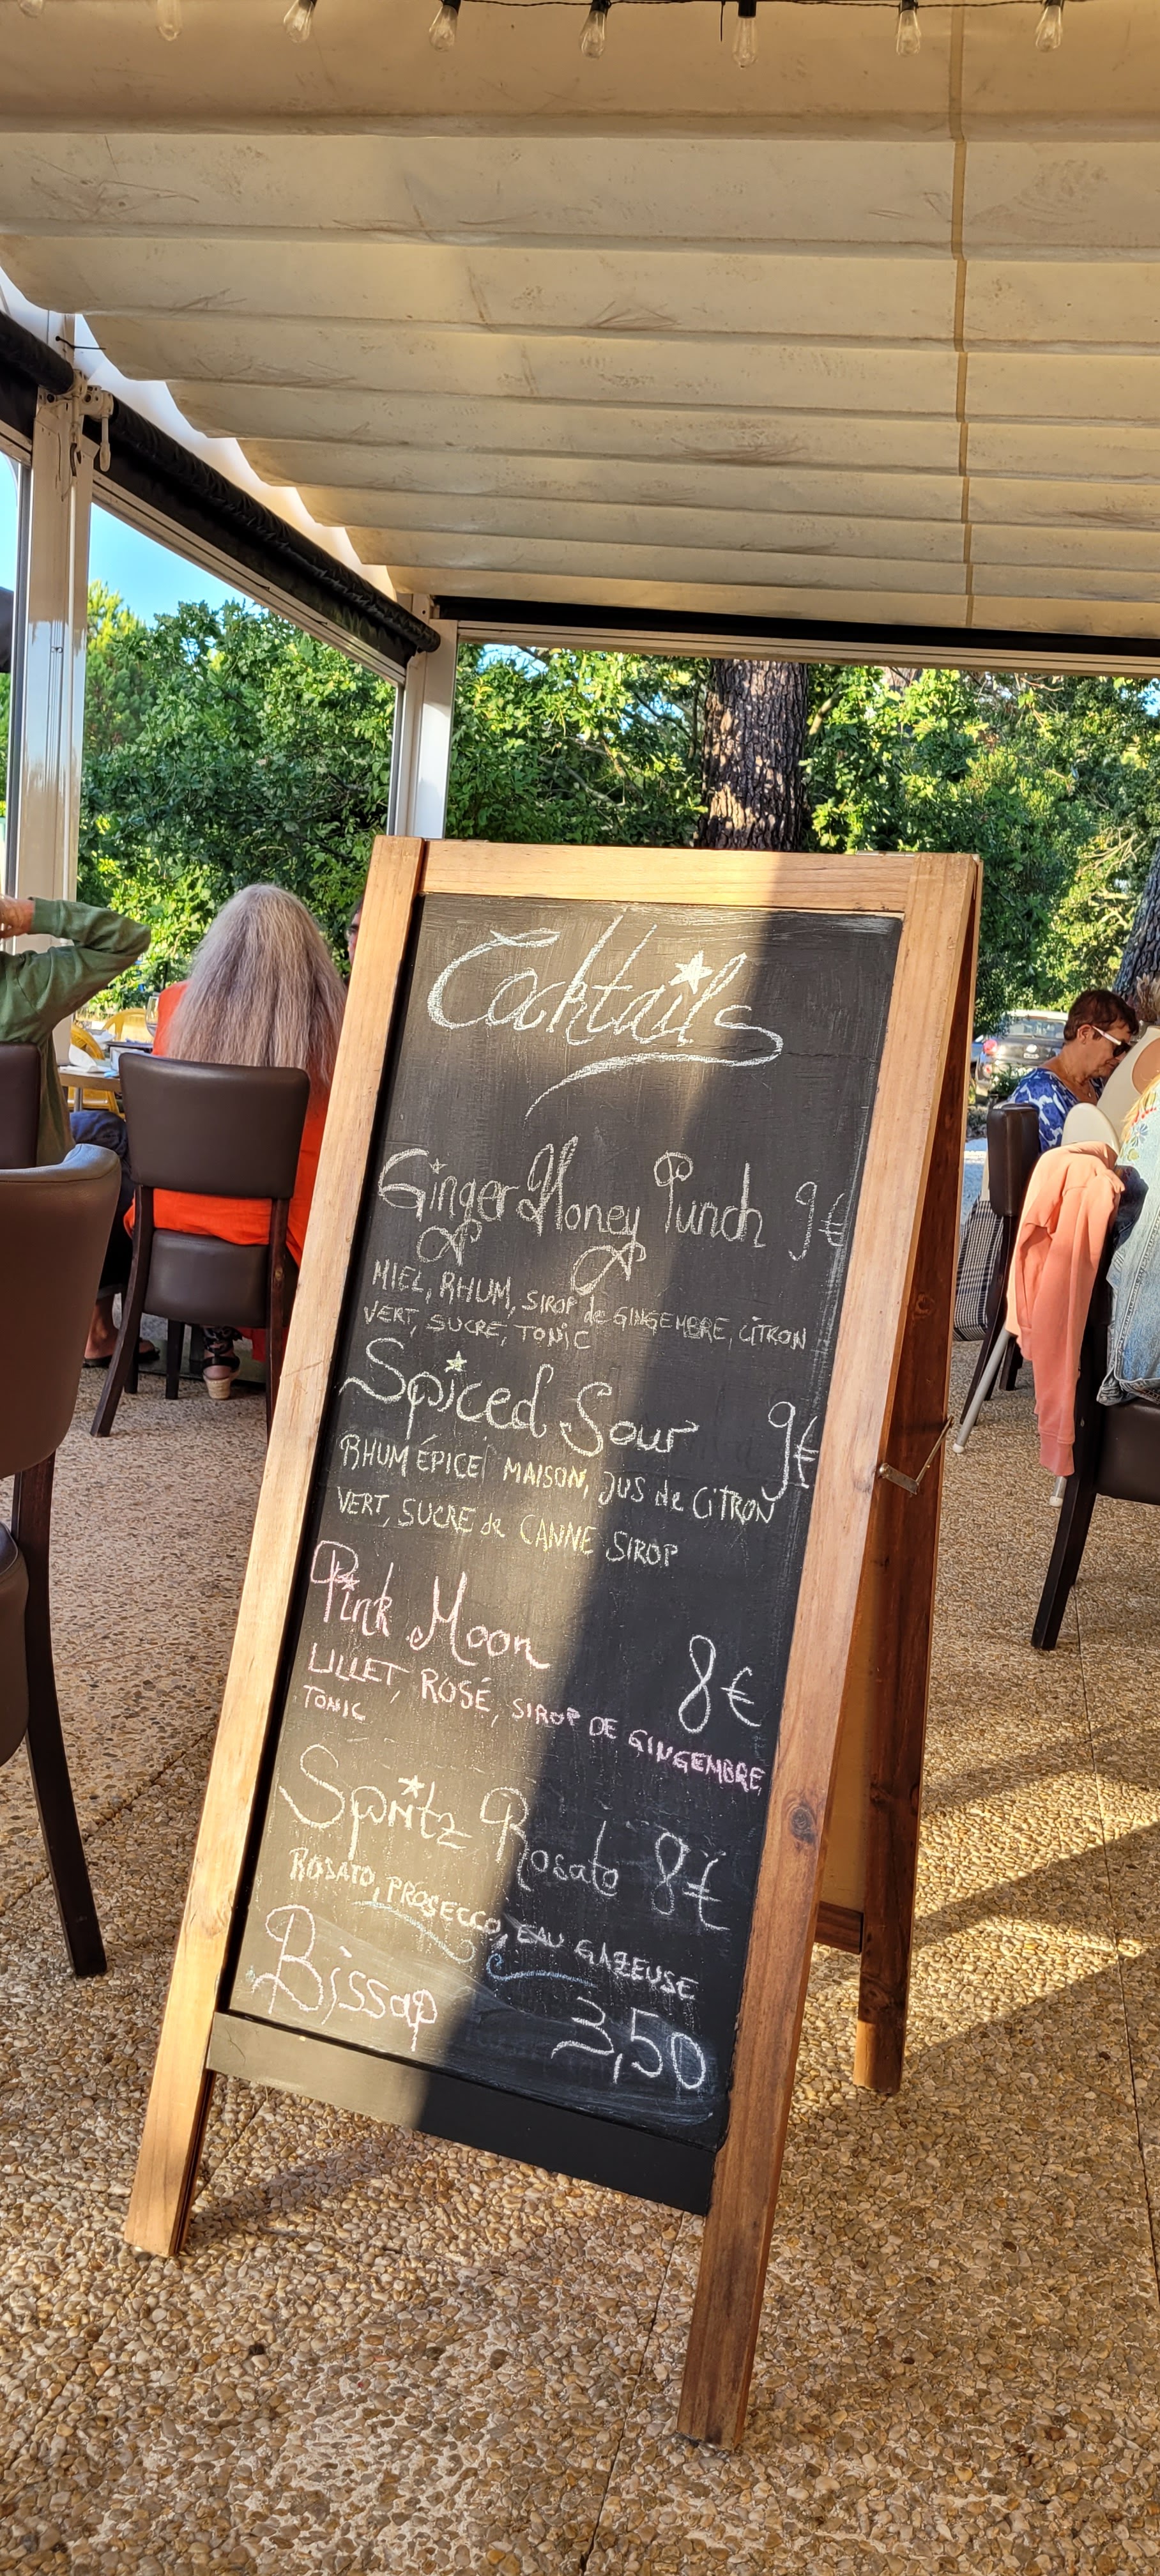 Cocktails
Ginger Honey Punch 9€
MIEL, RHUM, SIROP de GINGEMBRE, CITRON
VERT, SUCRE, TONIC
Spiced Sour 9€
RHUM ÉPICE MAISON, JUS de CITRON
VERT, SUCRE de CANNE SIROP
Pink Moon 8€
LILLET, ROSÉ, SIROP DE GINGEMBRE,
TONIC
Spritz Rosato 8€
ROSATO, PROSECCO, EAU GAZEUSE
Bissap 3,50